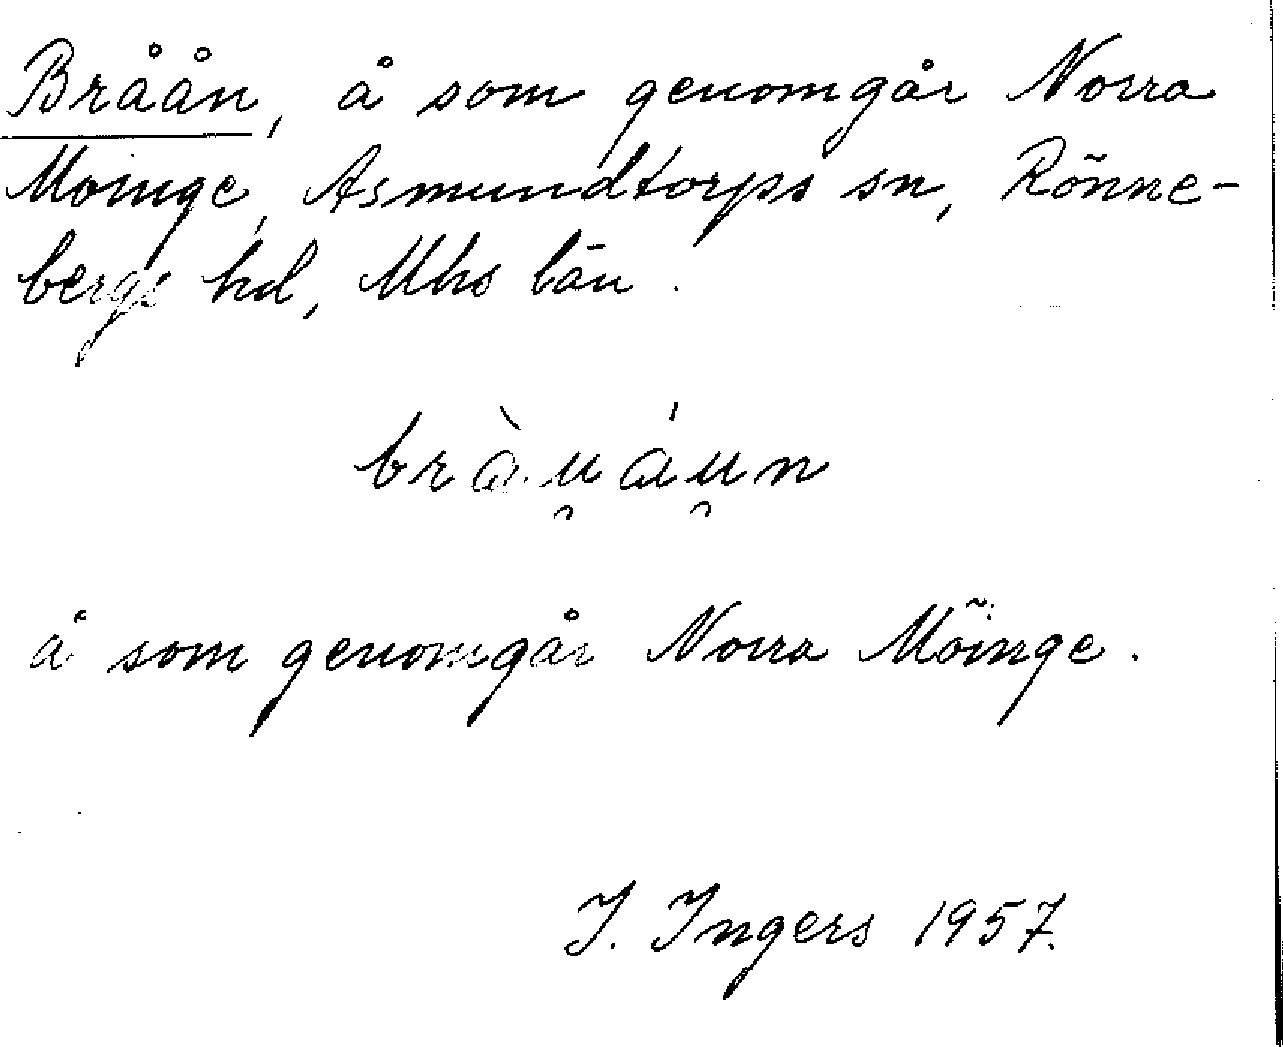 Bråån, å som genomgår Norra
Möinge, Asmundtorps sn, Rönne-
bergs hd, Mhs län.
brɑ̀u̯ɑ́u̯n
å som genomgår Norra Möinge.
I. Ingers 1957.